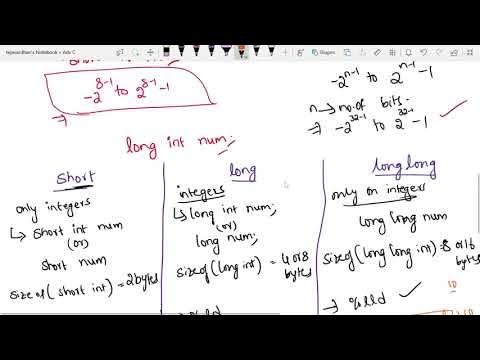 tejavardhan's Notebook » Adv C
-2^8-1 to 2^8-1 -1
→
-2^n-1 to 2^n-1 -1
n → no. of bits -
→ -2^32-1 to 2^32-1 -1
long int num;
short
only integers
↳ short int num
(or)
short num
size of (short int) = 2 bytes
long
integers
↳ long int num;
(or)
long num;
size of (long int) = 4 or 8 bytes
→ % ld
long long
only on integers
long long num
size of (long long int) = 8 or 16 bytes
→ % lld
10